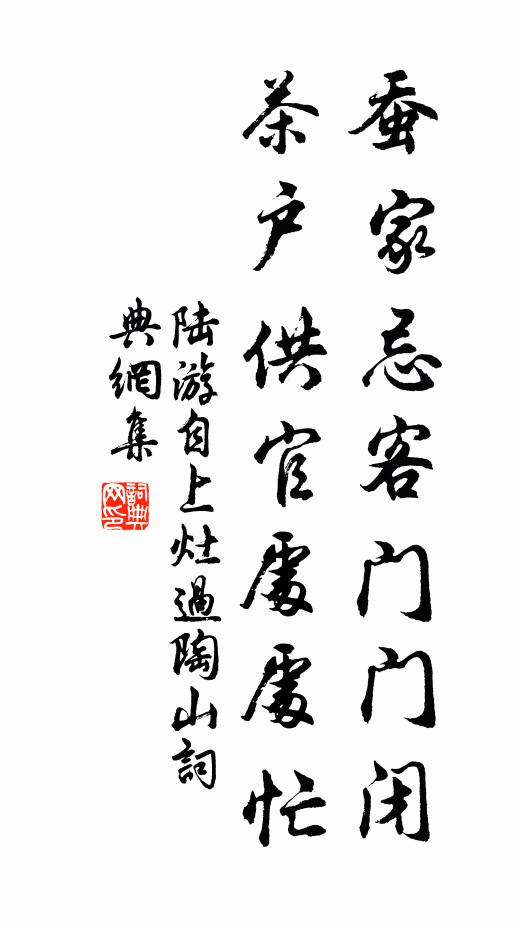 蚕家忌客门门闭
茶户供官處處忙
陆游自上灶過陶山詞
典網集
詞典
网印